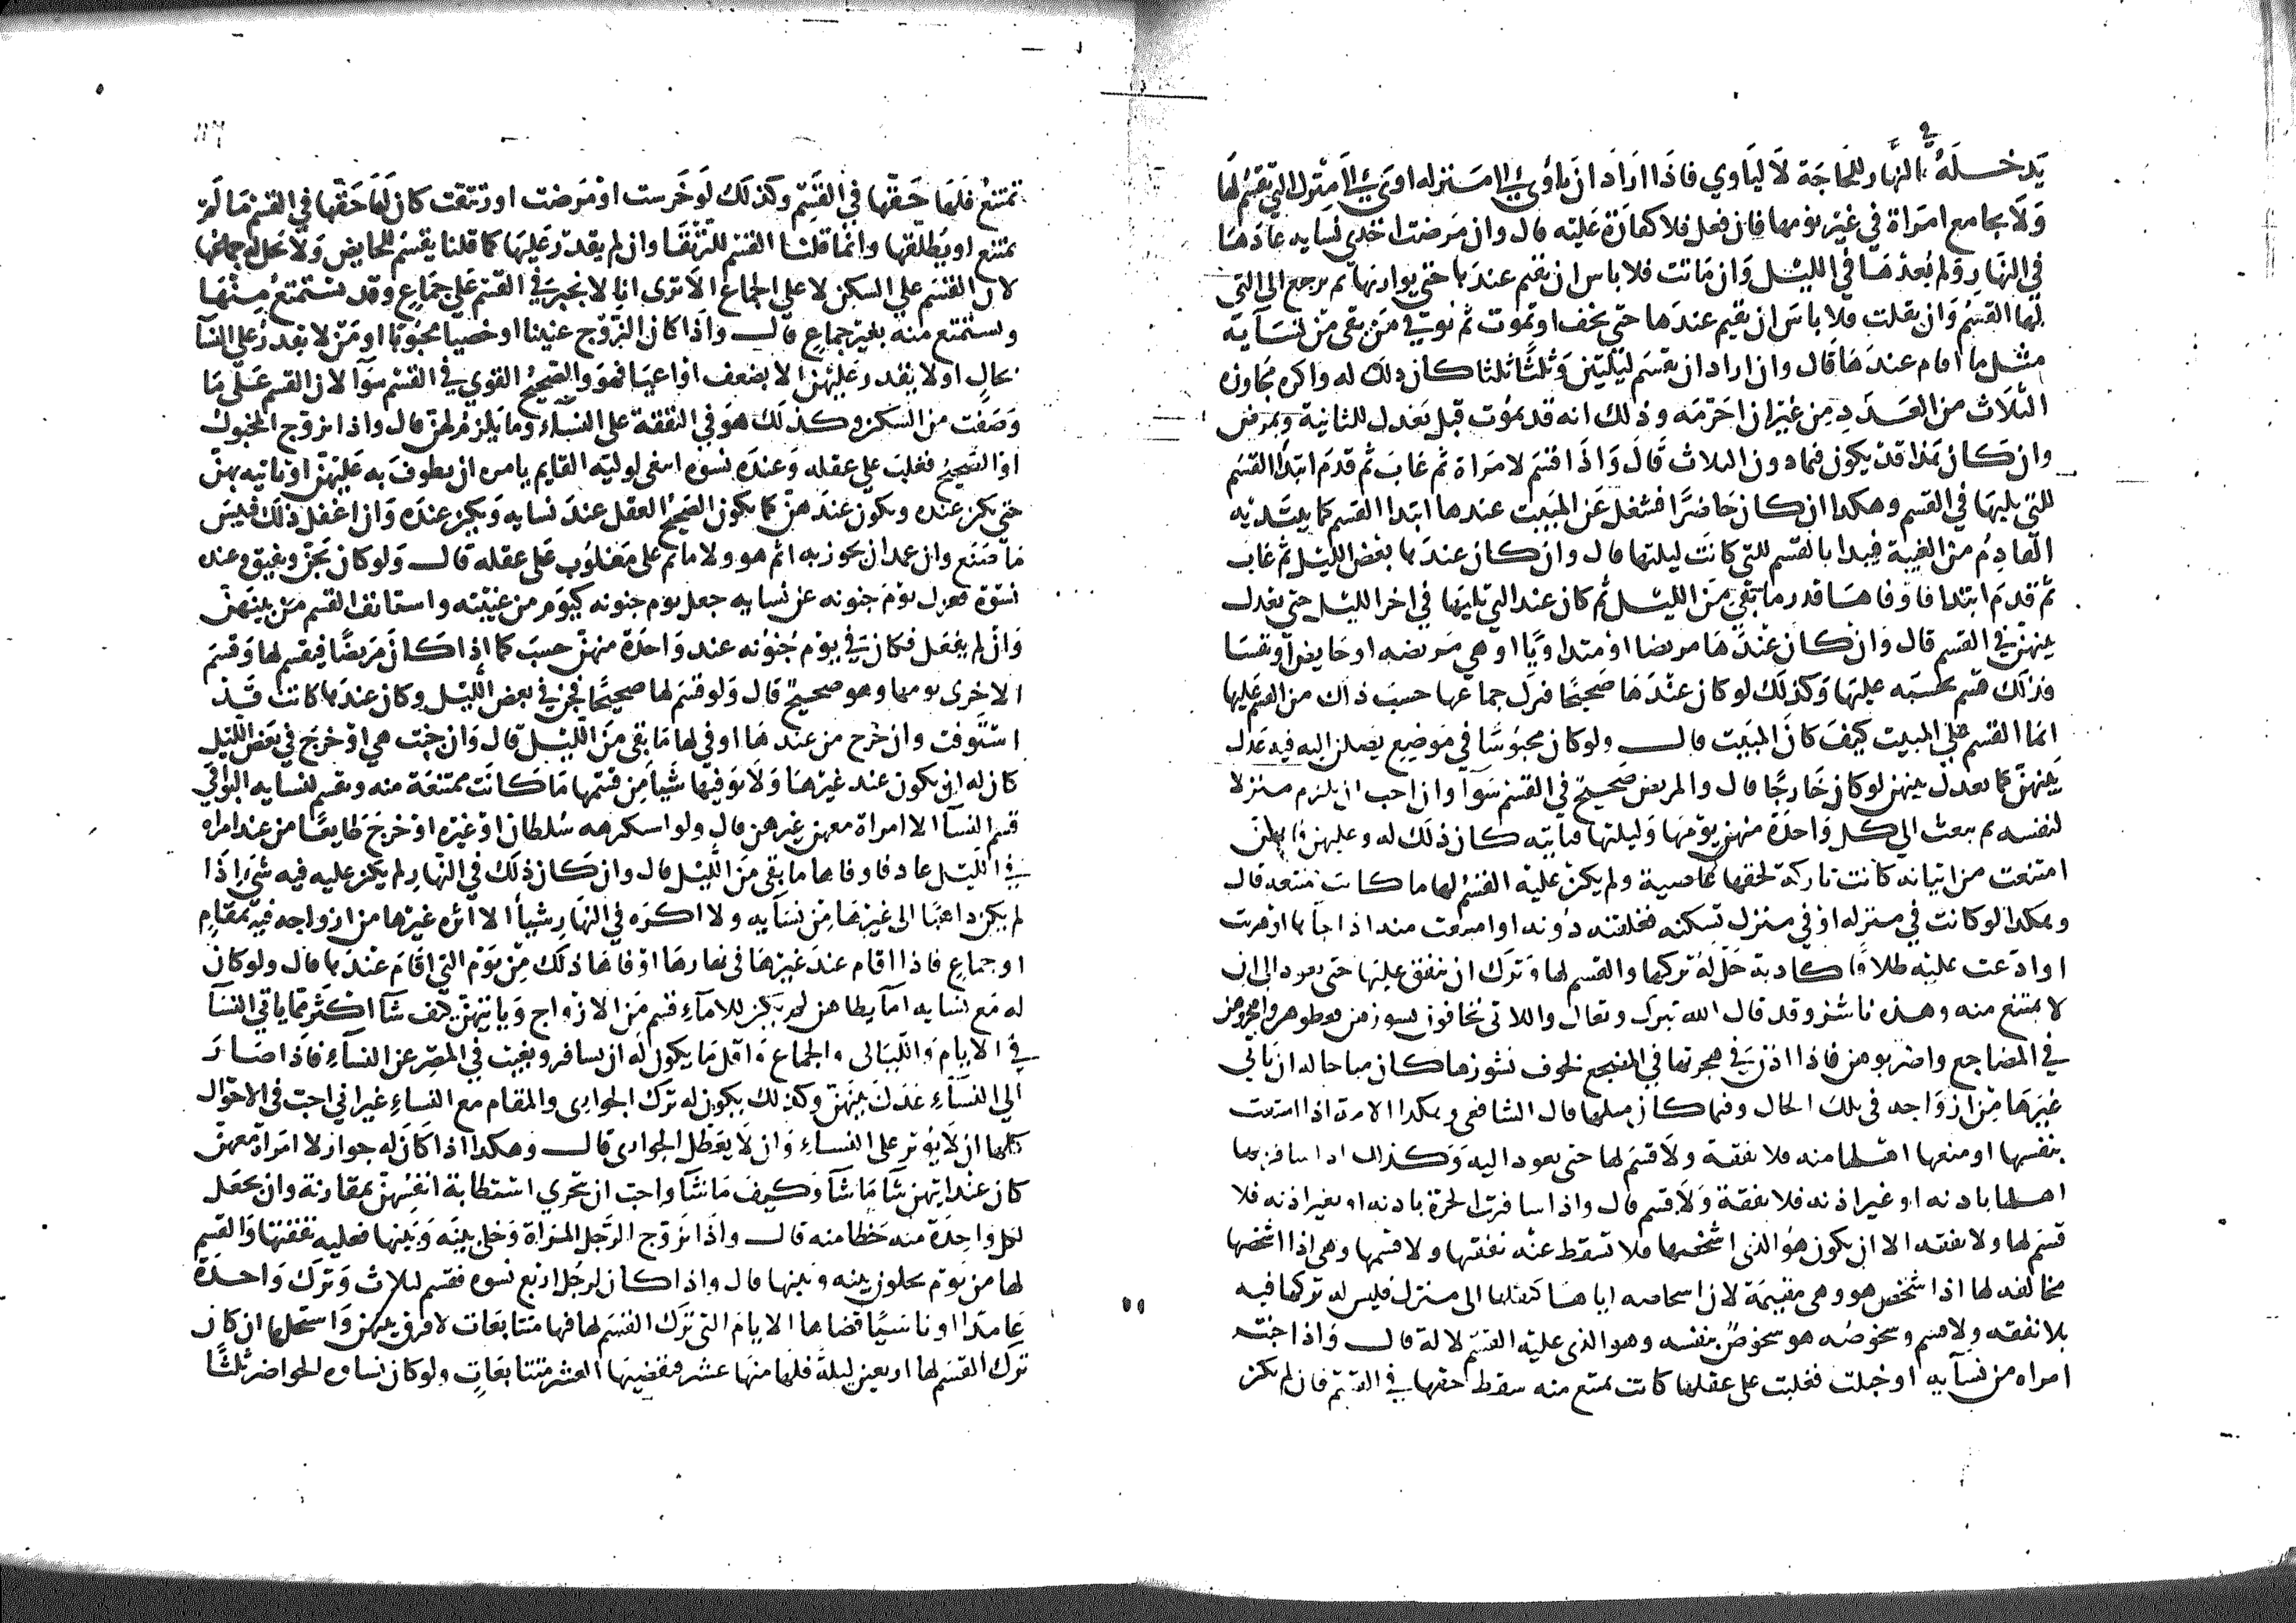 يدخله في النهار للحاجة لا لياوي فاذا اراد ان ياوي الى منزله اوى الى منزل التي يقسم لها
ولا يجامع امراة في غير يومها فان فعل فلا كفارة عليه قال وان مرضت احدى نسايه عادها
في النهار ولم يعدها في الليل وان ماتت فلا باس ان يقيم عندها حتى يواريها ثم يرجع الى التي
لها القسم وان ثقلت فلا باس ان يقيم عندها حتى تخف او تموت ثم يوفي من بقى من نسآيه
مثل ما اقام عندها قال وان اراد ان يقسم ليلتين وثلثا ثلثا كان ذلك له واكره مجاوزه
الثلاث من العدد من غير ان احرمه وذلك انه قد يموت قبل يعدل للثانية ويمرض
وان كان هذا قد يكون فيما دون الثلاث قال واذا قسم لامراة ثم غاب ثم قدم ابتدا القسم
للتي يليها في القسم وهكذا ان كان حاضرا فشغل عن المبيت عندها ابتدا القسم كما يبتديه
القادم من الغيبة فيبدا بالقسم للتي كانت ليلتها قال وان كان عندها بعض الليل ثم غاب
ثم قدم ابتدا فاوفاها قدر ما بقي من الليل ثم كان عند التي تليها في اخر الليل حتى يعدل
بينهن في القسم قال وان كان عندها مريضا او متداويا او هي مريضه او حايض او نفسا
فذلك قسم يحسبه عليها وكذلك لو كان عندها صحيحا فترك جماعها حسب ذلك من القسم عليها
انما القسم على المبيت كيف كان المبيت قال ولو كان محبوسا في موضع يصلن اليه فيه عدل
بينهن كما يعدل بينهن لو كان خارجا قال والمريض والصحيح في القسم سوآ وان احب ان يلزم منزلا
لنفسه ثم يبعث الى كل واحدة منهن يومها وليلتها فتاتيه كان ذلك له وعليهن فايتهن
امتنعت من اتيانه كانت تاركة لحقها عاصية ولم يكن عليه القسم لها ما كانت ممتنعه قال
وهكذا لو كانت في منزله او في منزل تسكنه فغلقته دونه او امتنعت منه اذا جآها او هربت
او ادعت عليه طلاقا كاذبة حل له تركها والقسم لها وترك ان ينفق عليها حتى يعود الى ان
لا يمتنع منه وهذه ناشز وقد قال الله تبرك وتعالى واللاتي تخافون نشوزهن فعظوهن واهجروهن
في المضاجع واضربوهن فاذا اذن في هجرتها في المضجع لخوف نشوزها كان مباحا له ان ياتي
غيرها من ازواجه في تلك الحال وفيما كان مثلها قال الشافعي وهكذا الامة اذا امتنعت
بنفسها او منعها اهلها منه فلا نفقة ولا قسم لها حتى يعود اليه وكذلك اذا سافر بها
اهلها باذنه او غير اذنه فلا نفقة ولا قسم قال واذا سافرت الحرة باذنه او بغير اذنه فلا
قسم لها ولا نفقه الا ان يكون هو الذي اشخصها فلا تسقط عنه نفقتها ولا قسمها وهي اذا اشخصها
مخالفه لها اذا شخص هو وهي مقيمة لان اشخاصه اياها كنقلها الى منزل فليس له تركها فيه
بلا نفقه ولا قسم وشخوصه هو شخوص بنفسه وهو الذي عليه القسم لا له قال واذا جنت
امراه من نسآيه او خبلت فغلبت على عقلها كانت تمتنع منه سقط حقها في القسم فان لم يكن
تمتنع فلها حقها في القسم وكذلك لو خرست او مرضت او رتقت كان لها حقها في القسم ما لم
تمتنع او يطلقها وانما قلنا القسم للرتقا وان لم يقدر عليها كما قلنا يقسم للحايض ولا يحل له جماعها
لان القسم على السكن لا على الجماع الا ترى انا لا نجبره في القسم على جماع وقد يستمتع منها
وتستمتع منه بغير جماع قال واذا كان الزوج عنينا او خصيا مجبوبا او من لا يقدر على النسآ
بحال او لا يقدر عليهن الا بضعف او اعيا فهو والصحيح القوي في القسم سوآ لان القسم على ما
وصفت من السكن وكذلك هو في النفقة على النسآء وما يلزم لهن قال واذا تزوج المخبول
او الصحيح فغلب على عقله وعنده نسوه انبغى لوليه القايم بامره ان يطوف به عليهن او ياتيه بهن
حتى يكن عنده ويكون عندهن كما يكون الصحيح العقل عند نسايه ويكن عنده وان اغفل ذلك فبيس
ما صنع وان عمد ان يجوز به اثم هو ولا ماثم على مغلوب على عقله قال ولو كان يجن ويفيق وعنده
نسوة فعزل يوم جنونه عن نسايه جعل يوم جنونه كيوم من غيبته واستانف القسم من بينهن
وان لم يفعل فكان في يوم جنونه عند واحدة منهن حسب كما اذا كان مريضا فيقسم لها وقسم
الاخرى يومها وهو صحيح قال ولو قسم لها صحيحا فجن في بعض الليل وكان عندها كانت قد
استوفت وان خرج من عندها اوفي لها ما بقى من الليل قال وان جنت هي او خرج في بعض الليل
كان له ان يكون عند غيرها ولا يوفيها شيا من قسمها ما كانت ممتنعة منه ويقسم لنسايه البواقي
قسم النسآ الا امراة معهن غيرهن قال ولو استكرهه سلطان او غيره او خرج طايعا من عند امراه
في الليل عاد فاوفاها ما بقى من الليل قال وان كان ذلك في النهار لم يكن عليه فيه شيء اذا
لم يكن ذاهبا الى غيرها من نسآيه ولا اكره في النهار شيأ الا اثره غيرها من ازواجه فيه بمقام
او جماع فاذا اقام عند غيرها في نهارها اوفاها ذلك من يوم التي اقام عندها قال ولو كان
له مع نسايه امآ يطاهن لم يكن للامآء قسم من الازواج وياتيهن كيف شآ اكثر مما ياتي النسآ
في الايام والليالي والجماع واقل ما يكون له ان يسافر ويغيب في المصر عن النسآء فاذا صار
الى النسآء عدل بينهن وكذلك يكون له ترك الجوارى والمقام مع النساء غير اني احب في الاحوال
كلها ان لا يوثر على النساء وان لا يعطل الجوارى قال وهكذا اذا كان له جوار لا امراة معهن
كان عند ايتهن شا ما شآ وكيف ما شآ واحب ان يتحرى استطابة انفسهن بمقاربة وان يجعل
لكل واحدة منه حظا منه قال واذا تزوج الرجل المراة وخلى بينه وبينها فعليه نفقتها والقسم
لها من يوم يخلون بينه وبينها قال واذا كان لرجل اربع نسوه فقسم لثلاث وترك واحدة
عامدا او ناسيا قضاها الايام التي ترك القسم لها فيها متتابعات لا فرق بينهن واستحلها ان كان
ترك القسم لها اربعين ليلة فلها منها عشر فيقضيها العشر متتابعات ولو كان نساوه الحواضر ثلثا